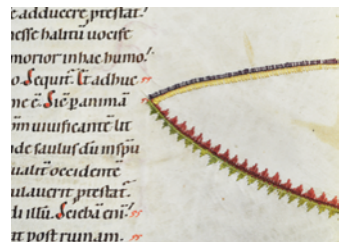 e adducere, prestat.
nesse halitū uocise
morior in hac humo.
o. Sequit̄. Ut adhuc
me ē. Sic panima
om̄ uiuificante ut
de saulus dū in spu
ualit̄ occidente
ulauerit prestat.
di illū. Sciebā eni
tt post ruinam.